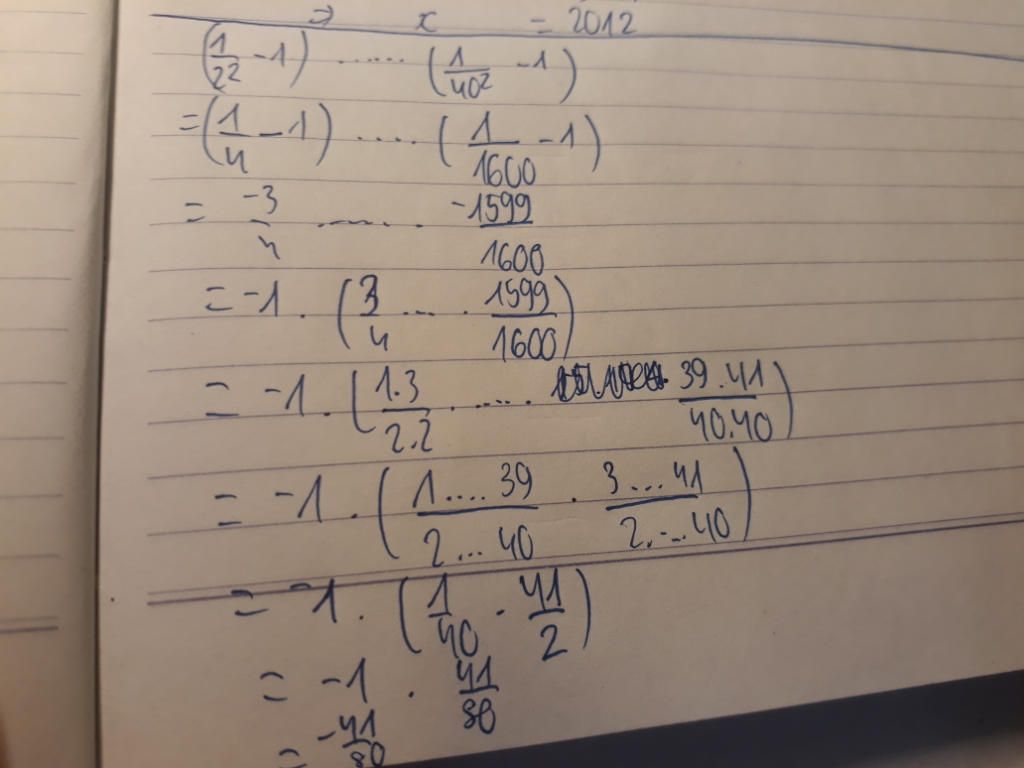 ⇒ x = 2012
(1/2² - 1) ...... (1/40² - 1)
= (1/4 - 1) ..... (1/1600 - 1)
= -3/4 ........ -1599/1600
= -1 . (3/4 ... . 1599/1600)
= -1 . (1.3/2.2 . .... . 39.41/40.40)
= -1 . (1....39/2...40 . 3...41/2....40)
= -1 . (1/40 . 41/2)
= -1 . 41/80
= -41/80